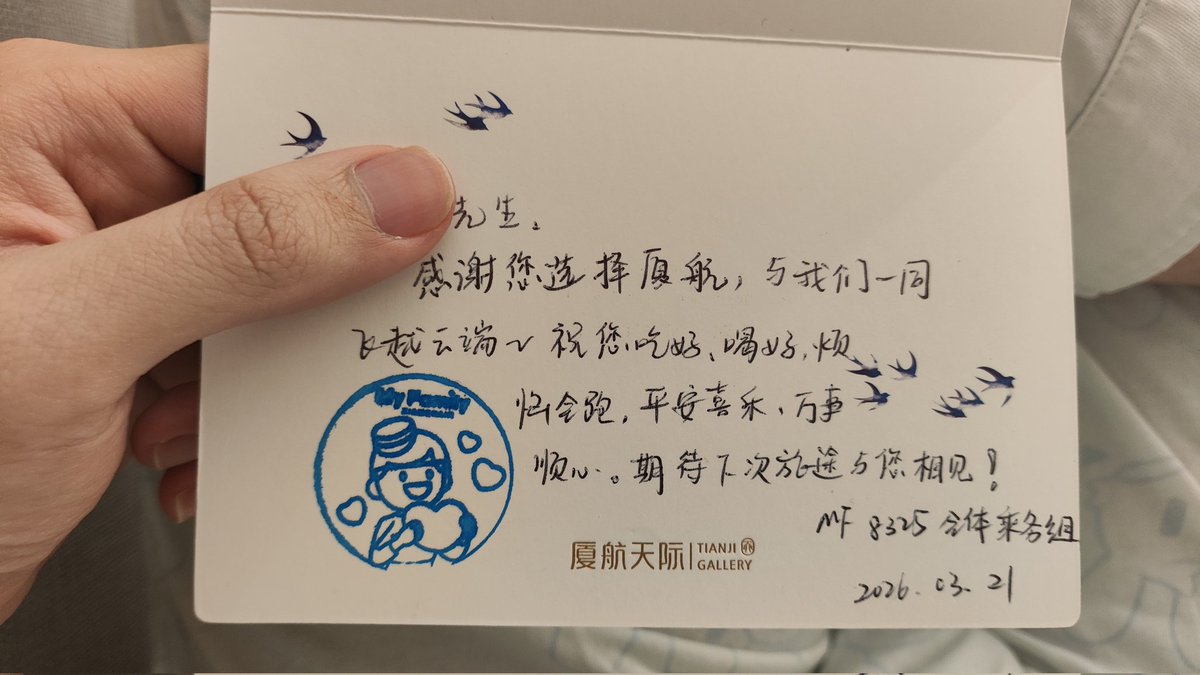 先生,
感谢您选择厦航,与我们一同
飞越云端~祝您吃好、喝好,烦
恼全跑,平安喜乐、万事
顺心。期待下次旅途与您相见!
MF 8325 全体乘务组
2026.03.21
My Family
厦航天际 TIANJI
GALLERY